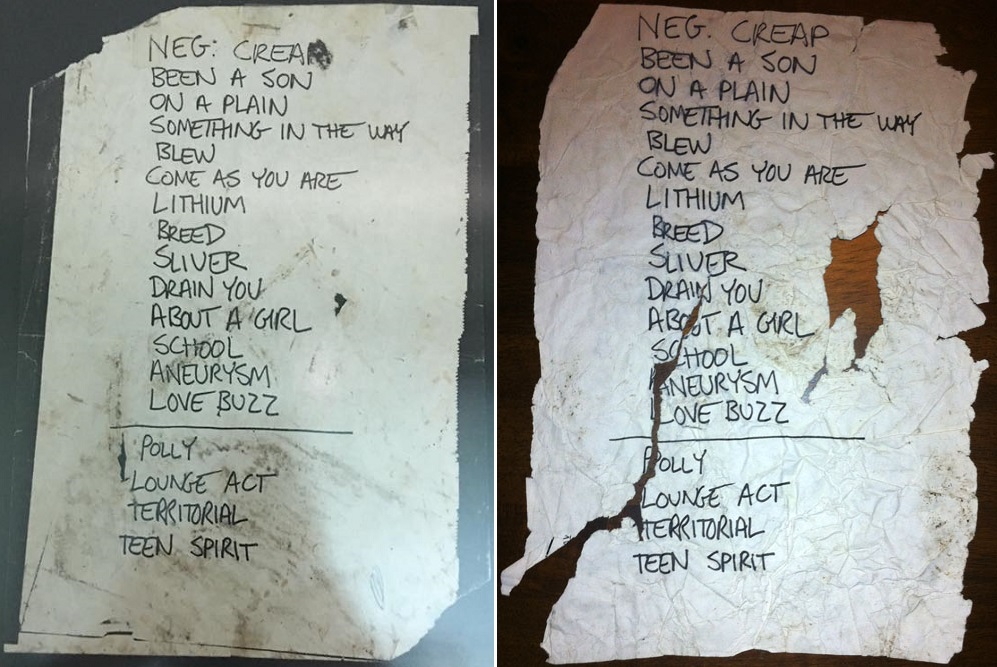 NEG: CREAP
BEEN A SON
ON A PLAIN
SOMETHING IN THE WAY
BLEW
COME AS YOU ARE
LITHIUM
BREED
SLIVER
DRAIN YOU
ABOUT A GIRL
SCHOOL
ANEURYSM
LOVE BUZZ
POLLY
LOUNGE ACT
TERRITORIAL
TEEN SPIRIT
NEG. CREAP
BEEN A SON
ON A PLAIN
SOMETHING IN THE WAY
BLEW
COME AS YOU ARE
LITHIUM
BREED
SLIVER
DRAIN YOU
ABOUT A GIRL
SCHOOL
ANEURYSM
LOVE BUZZ
POLLY
LOUNGE ACT
TERRITORIAL
TEEN SPIRIT